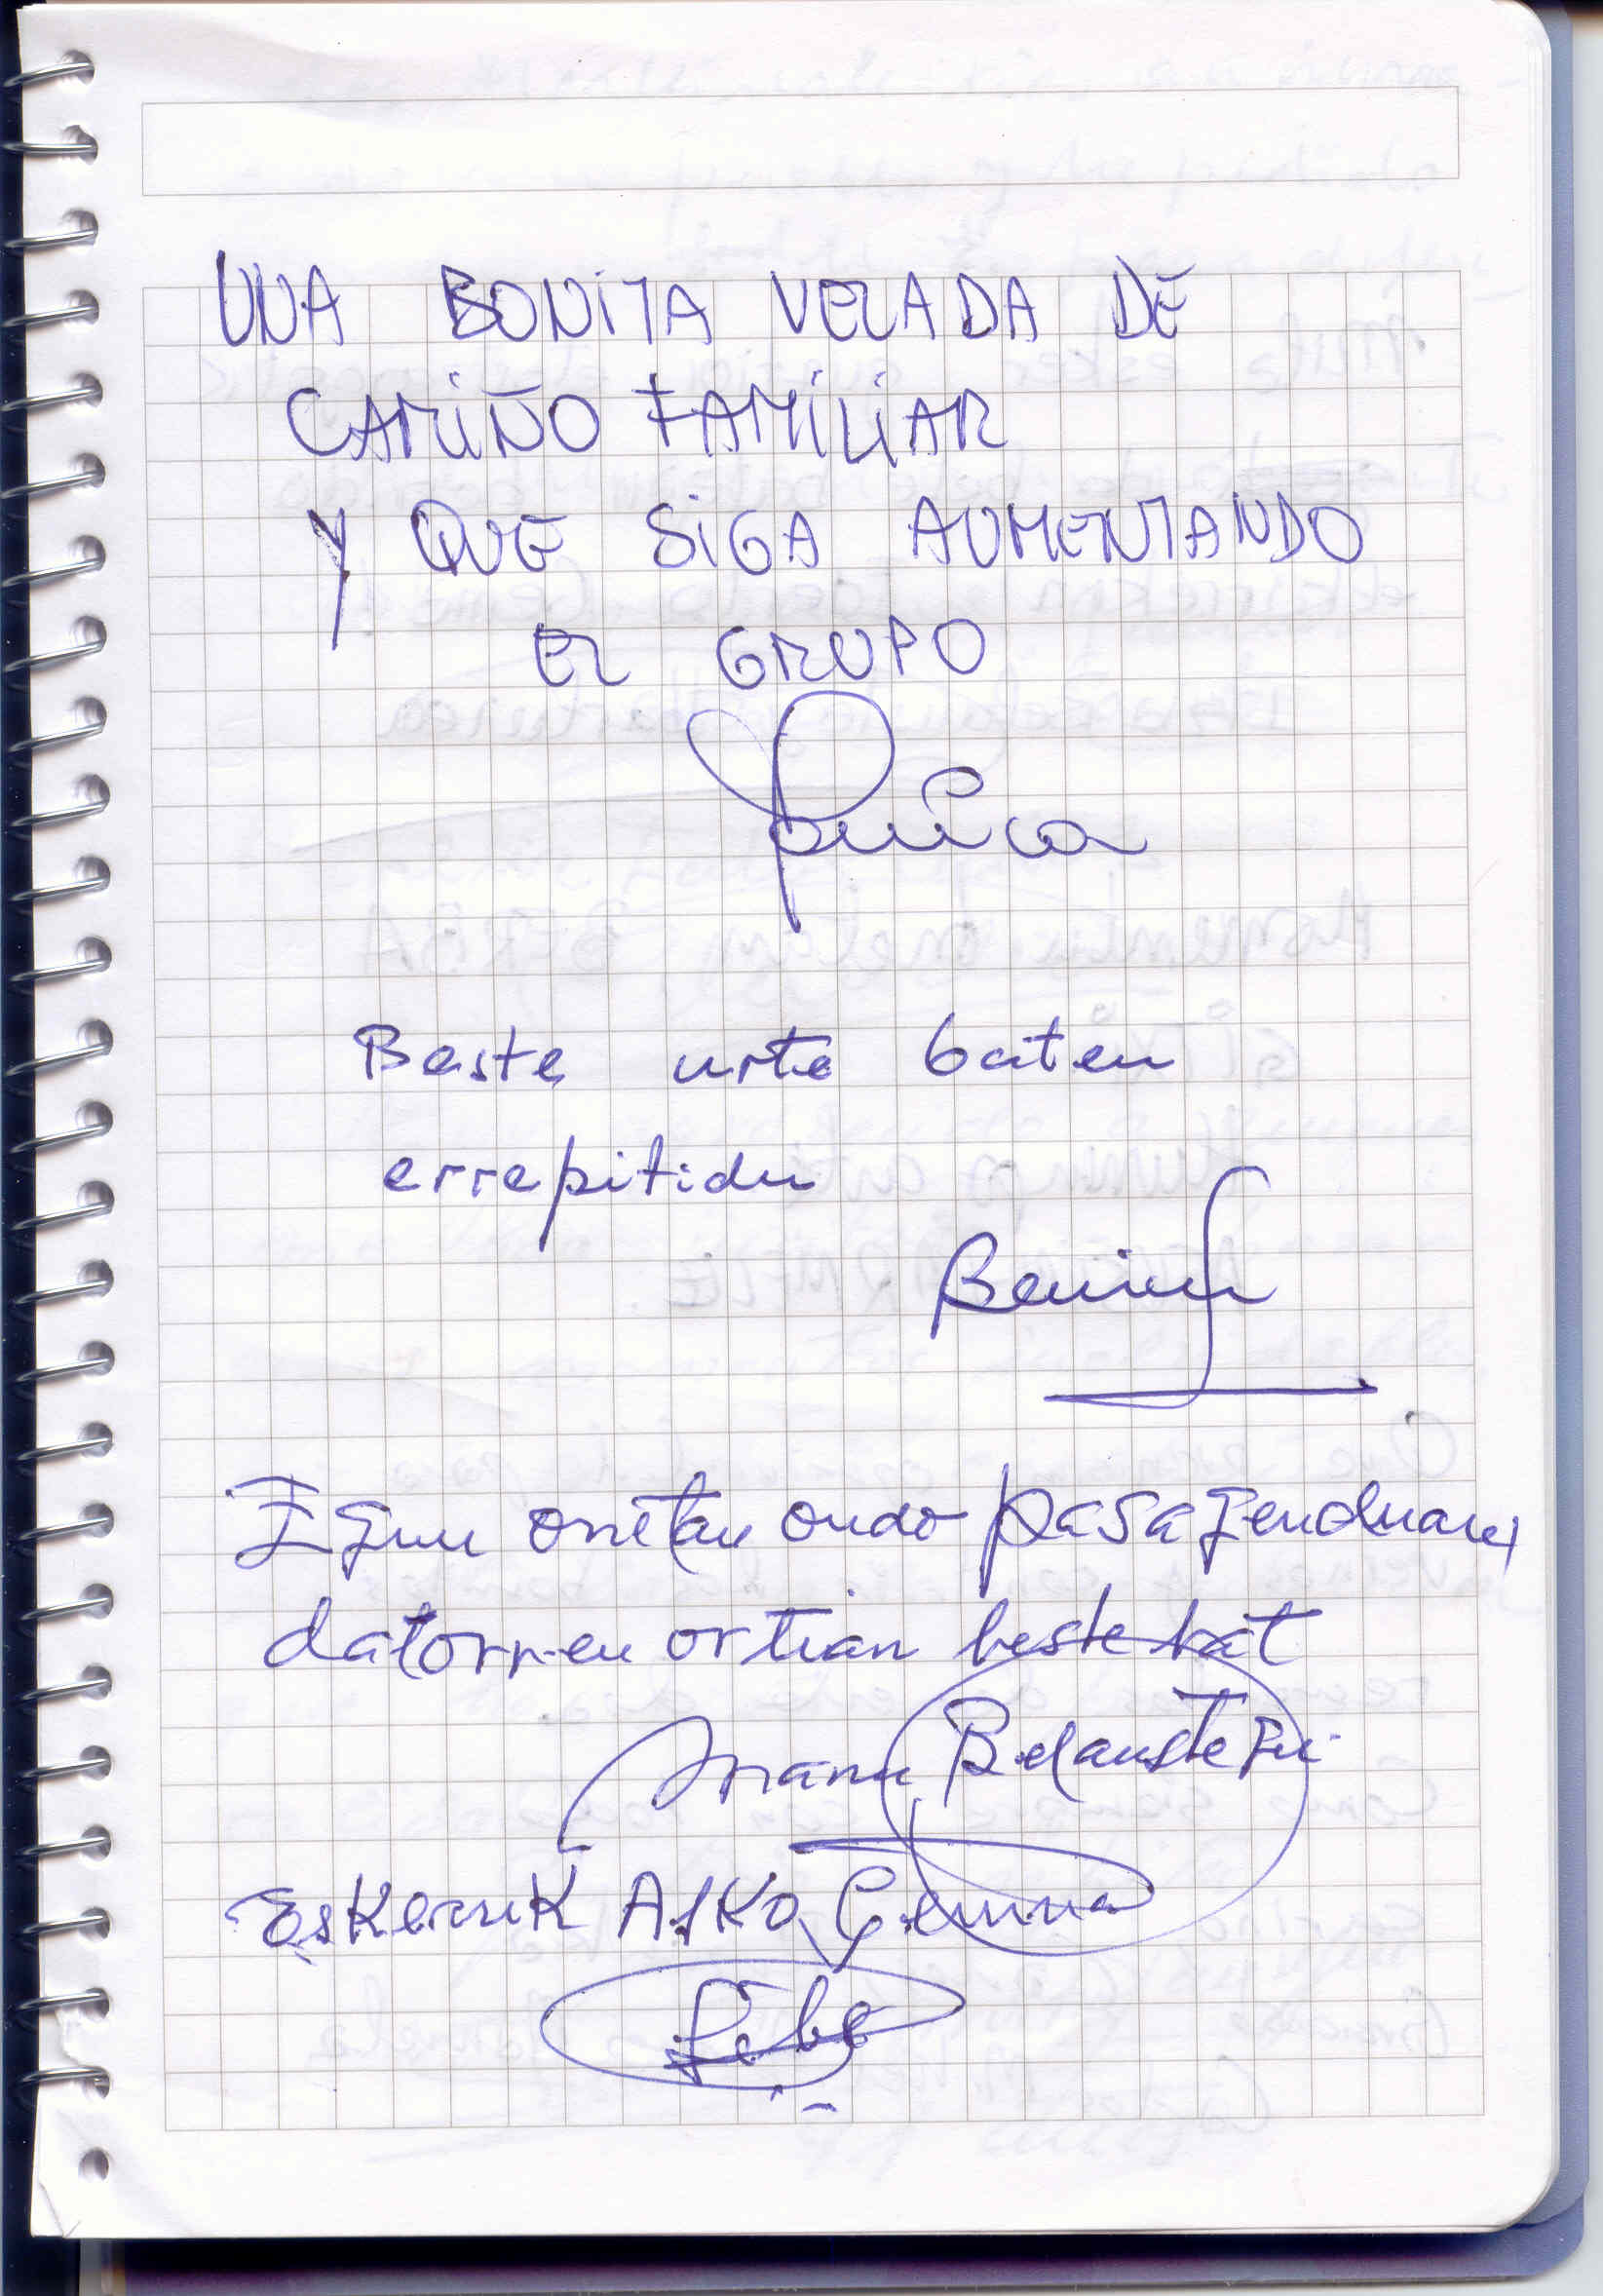 UNA BONITA VELADA DE
CARIÑO FAMILIAR
Y QUE SIGA AUMENTANDO
EL GRUPO
Beste urte baten
errepitidu
Egun onetan ondo pasa genduan,
datorren ortian beste bat
Belaustegi
Eskerrik Asko, Gemma